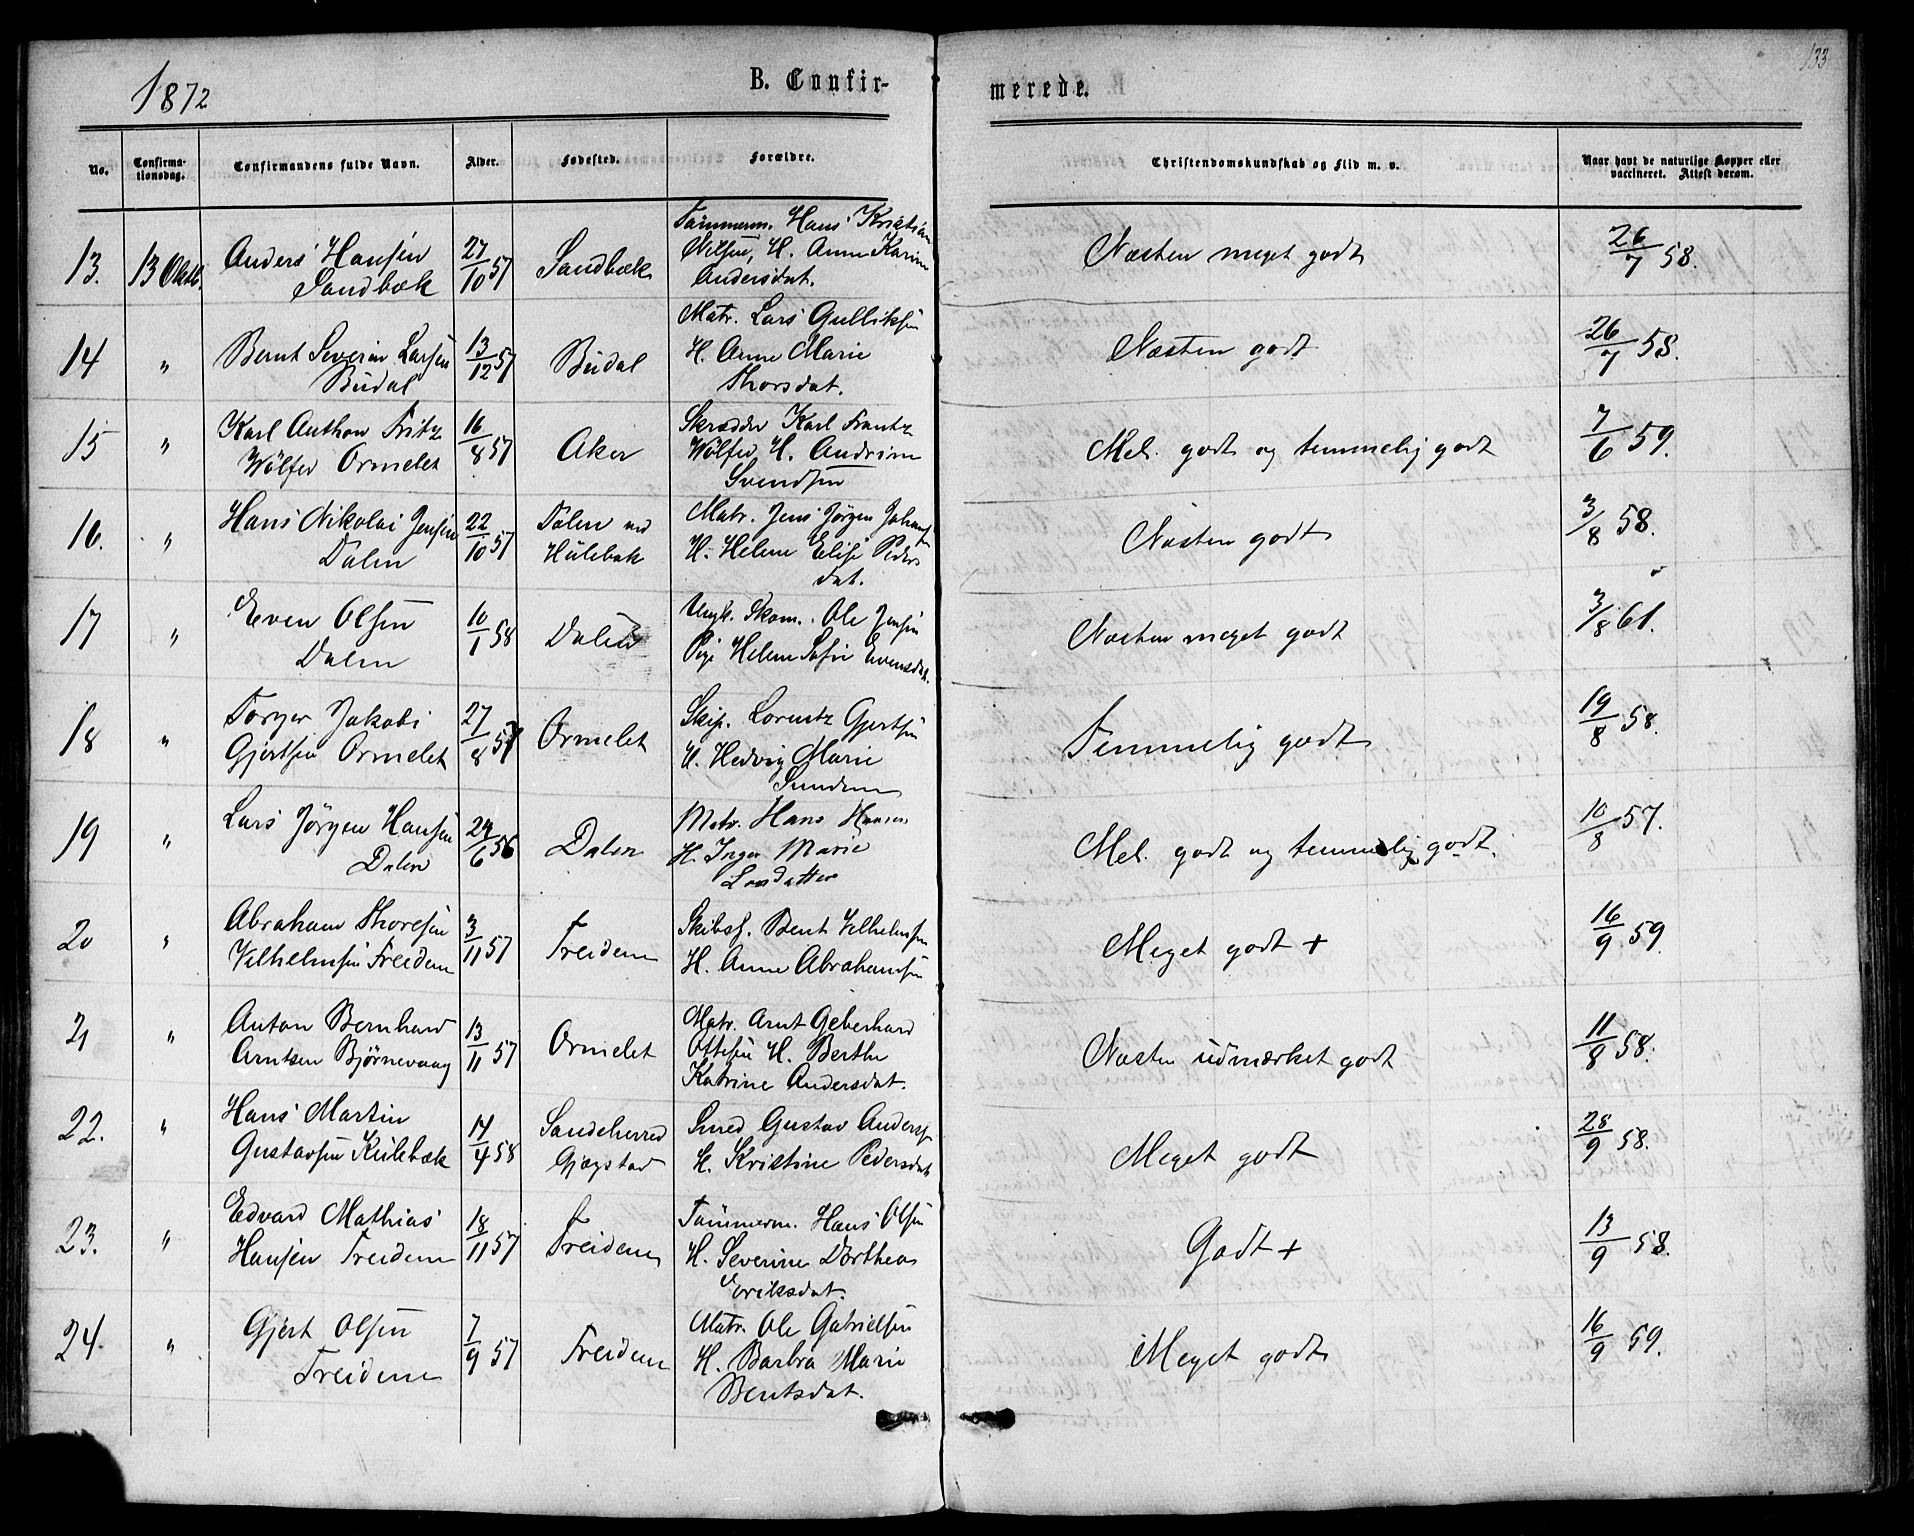 133
1872
B. Confir-
merede.
No.
Confirma-
tionsdag.
Confirmandens fulde Navn.
Alder.
Fødested.
Forældre.
Christendomskundskab og Flid m. v.
Naar havt de naturlige Kopper eller
vaccineret. Attest derom.
13. 13 Oktb. Anders Hansen Sandbæk 27/10 57 Sandbæk
Tømmerm. Hans Kristian
Nilsen, H. Anne Karine
Andersdat.
Næsten meget godt 26/7 58.
14 " Bernt Severin Larsen Budal 13/12 57 Budal
Matr. Lars Gulliksen
H. Anne Marie
Thorsdat.
Næsten godt 26/7 58.
15 " Karl Anthon Fritz Wölfer Ormelet 16/8 57 Aker
Skrædder Karl Frantz
Wölfer, H. Andrine
Svendsen
Mel. godt og temmelig godt 7/6 59.
16. " Hans Nikolai Jensen Dalen 22/10 57 Dalen ved Hulebak
Matr. Jens Jørgen Johans
H. Helene Elise Peders
dat.
Næsten godt 3/8 58.
17 " Even Olsen Dalen 10/1 58 Dalen
Ungk. Skom. Ole Jensen
Pige Helene Sofie Evensdat.
Næsten meget godt 3/8 61.
18 " Torger Jakobi Gjertsen Ormelet 27/8 57 Ormelet
Skip. Lorentz Gjertsen
H. Hedvig Marie
Sundene
Temmelig godt 19/8 58.
19 " Lars Jørgen Hansen Dalen 24/6 56 Dalen
Matr. Hans Hansen
H. Inger Marie
Larsdatter
Mel. godt og temmelig godt. 10/8 57.
20 " Abraham Thoresen Vilhelmsen Freidene 3/11 57 Freidene
Skibsf. Bent Vilhelmsen
H. Anne Abrahamsen
Meget godt + 16/9 59
21 " Anton Bernhard Arntsen Bjørnevaag 13/11 57 Ormelet
Matr. Arnt Geberhard
Ottesen H. Berthe
Katrine Andersdat.
Næsten udmærket godt 11/8 58.
22. " Hans Martin Gustavsen Kulebæk 14/4 58 Sandeherred Gjøgstad
Smed Gustav Anders
H. Kristine Pedersdat
Meget godt 28/9 58.
23. " Edvard Mathias Hansen Freidene 18/11 57 Freidene
Tømmerm. Hans Olsen
H. Severine Dorthea
Eriksdat.
Godt + 13/9 58.
24. " Gjert Olsen Freidene 7/9 57 Freidene
Matr. Ole Gabrielsen
H. Barbra Marie
Bentsdat.
Meget godt 16/9 59.